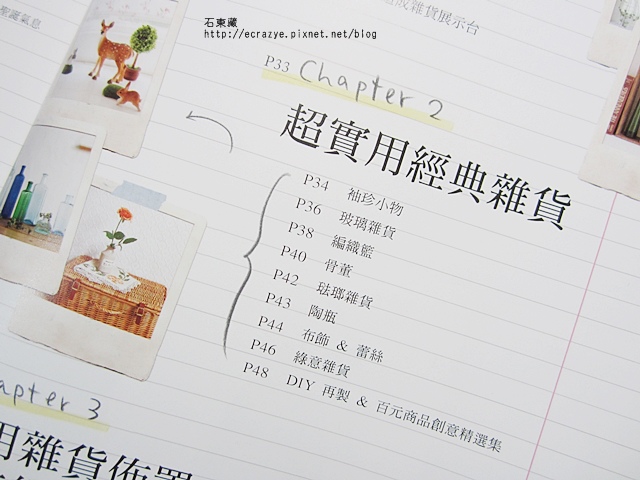 石東藏
http://ecrazye.pixnet.net/blog
雜貨展示台
P33 Chapter 2
超實用經典雜貨
P34 袖珍小物
P36 玻璃雜貨
P38 編織籃
P40 骨董
P42 琺瑯雜貨
P43 陶瓶
P44 布飾 & 蕾絲
P46 綠意雜貨
P48 DIY 再製 & 百元商品創意精選集
Chapter 3
用雜貨佈置